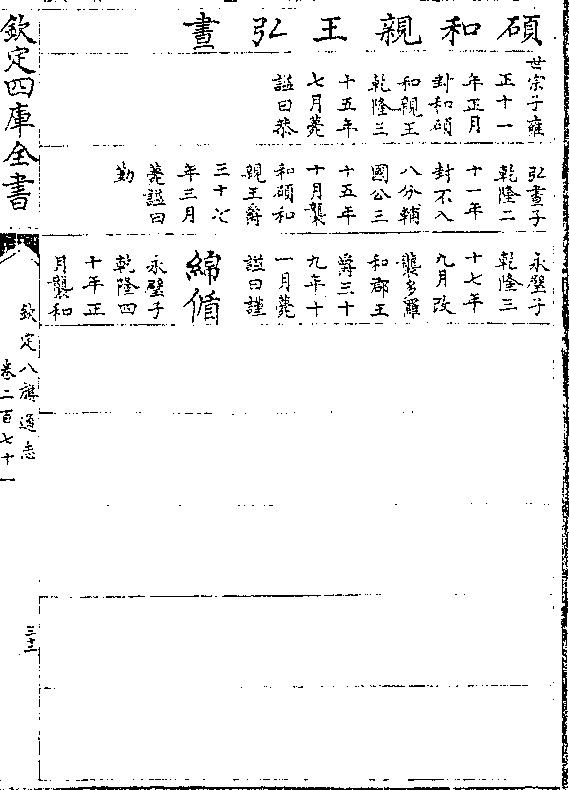 碩和親王弘晝
世宗子雍
正十一
年正月
封和碩
和親王
乾隆三
十五年
七月薨
諡曰恭
弘晝子
乾隆二
十一年
封不入
八分輔
國公三
十五年
十月襲
和碩和
親王爵
三十七
年三月
薨諡曰
勤
永璧子
乾隆三
十七年
九月改
襲多羅
和郡王
爵三十
九年十
一月薨
諡曰謹
綿循
永璧子
乾隆四
十年正
月襲和
欽定四庫全書
欽定八旗通志
卷二百七十一
三十三